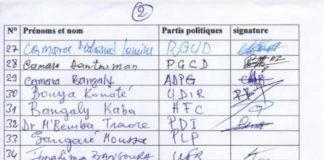 2
N° Prénoms et nom Partis politiques signature
27 Camara RGUD
28 Camara PGCD
29 Camara Bangaly ADPG
30 Bouya Konaté UDIR
31 Bangaly Kaba HFC
32 Dr M'Bemba Traore PDI
33 Sangaré Moussa PLP
34 BANGOURA